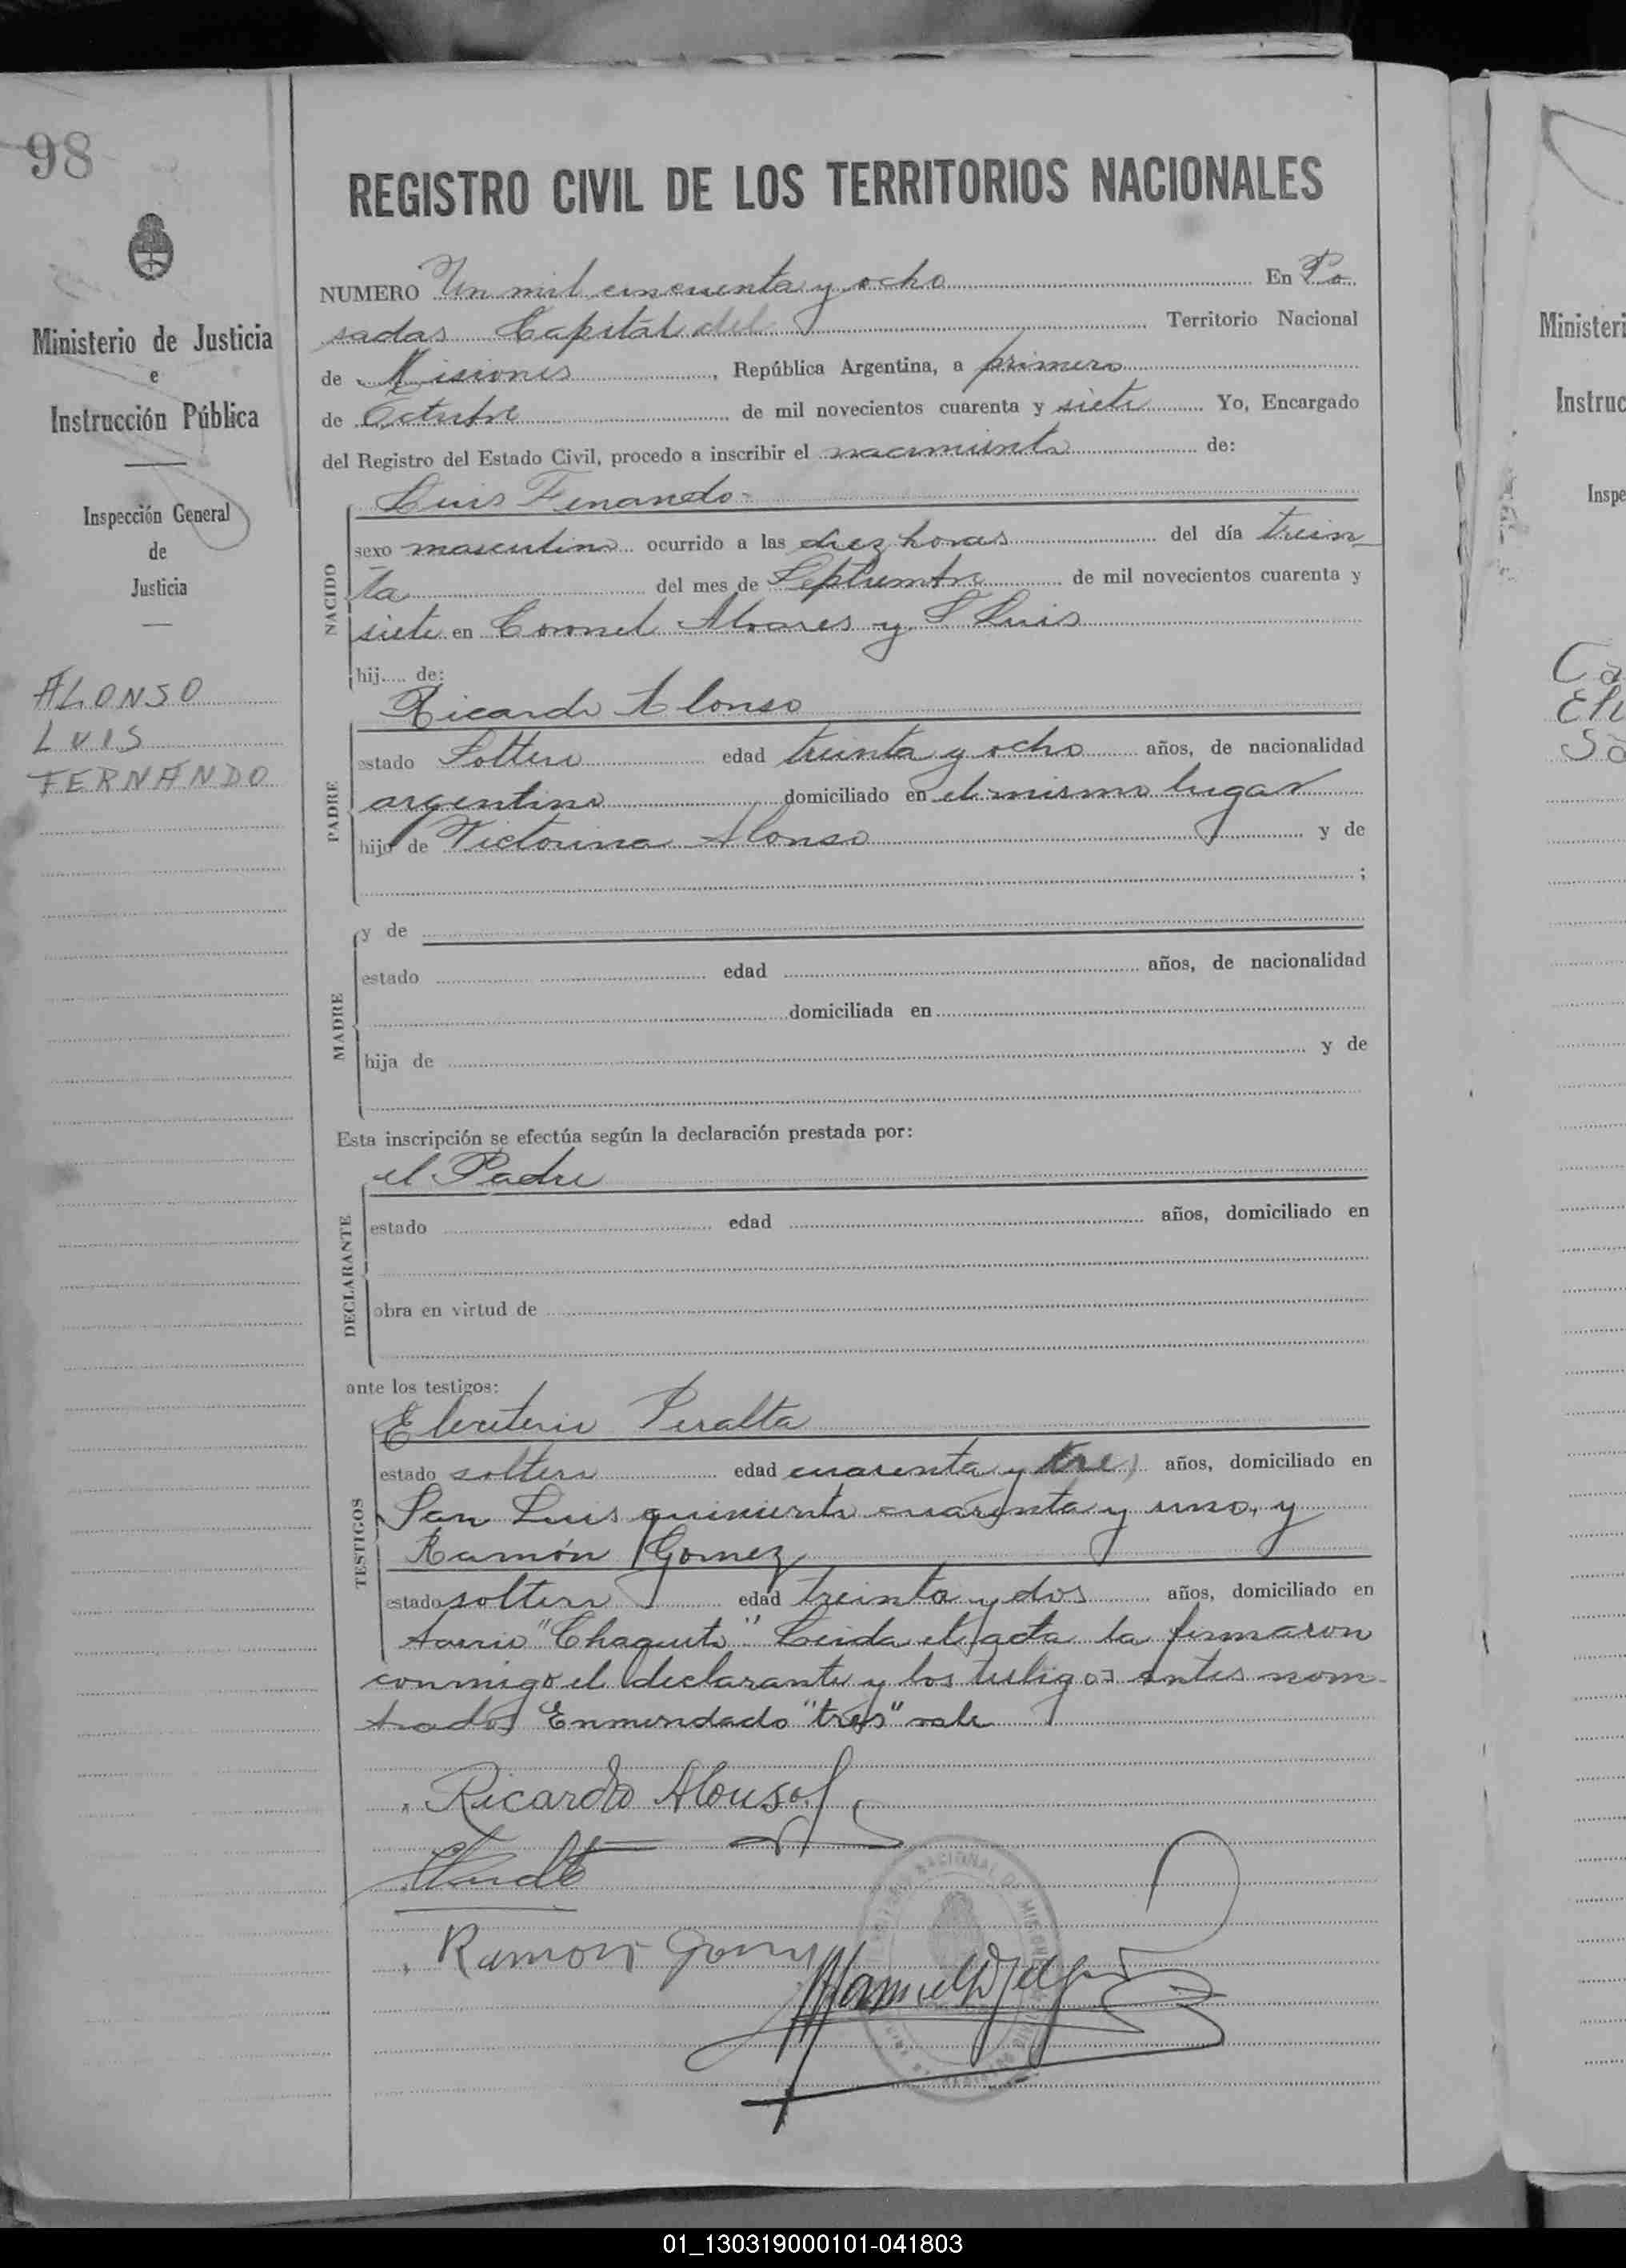 98
Ministerio de Justicia
e
Instrucción Pública
Inspección General
de
Justicia
ALONSO
LUIS
FERNANDO
REGISTRO CIVIL DE LOS TERRITORIOS NACIONALES
NUMERO Un mil cincuenta y ocho En Po
sadas Capital del Territorio Nacional
de Misiones, República Argentina, a primero
de Octubre de mil novecientos cuarenta y siete Yo, Encargado
del Registro del Estado Civil, procedo a inscribir el nacimiento de:
NACIDO
Luis Fenando-
sexo masculino ocurrido a las diez horas del día trein
ta del mes de Septiembre de mil novecientos cuarenta y
siete en Coronel Alvares y S Luis
hij de:
PADRE
Ricardo Alonso
estado Soltero edad treinta y ocho años, de nacionalidad
argentino domiciliado en el mismo lugar
hijo de Victorina Alonso y de
;
MADRE
y de
estado edad años, de nacionalidad
domiciliada en
hija de y de
Esta inscripción se efectúa según la declaración prestada por:
DECLARANTE
el Padre
estado edad años, domiciliado en
obra en virtud de
ante los testigos:
TESTIGOS
Eleuterio Peralta
estado soltero edad cuarenta y tres años, domiciliado en
San Luis quiniento cuarenta y uno, y
Ramón Gomez
estado soltero edad treinta y dos años, domiciliado en
barrio "Chaquito". Leida el acta la firmaron
conmigo el declarante y los testigos antes nom-
brados Enmendado "tres" vale
Ricardo Alonso
Ramon Gomez
Ministeri
Instruc
Inspe
01_130319000101-041803